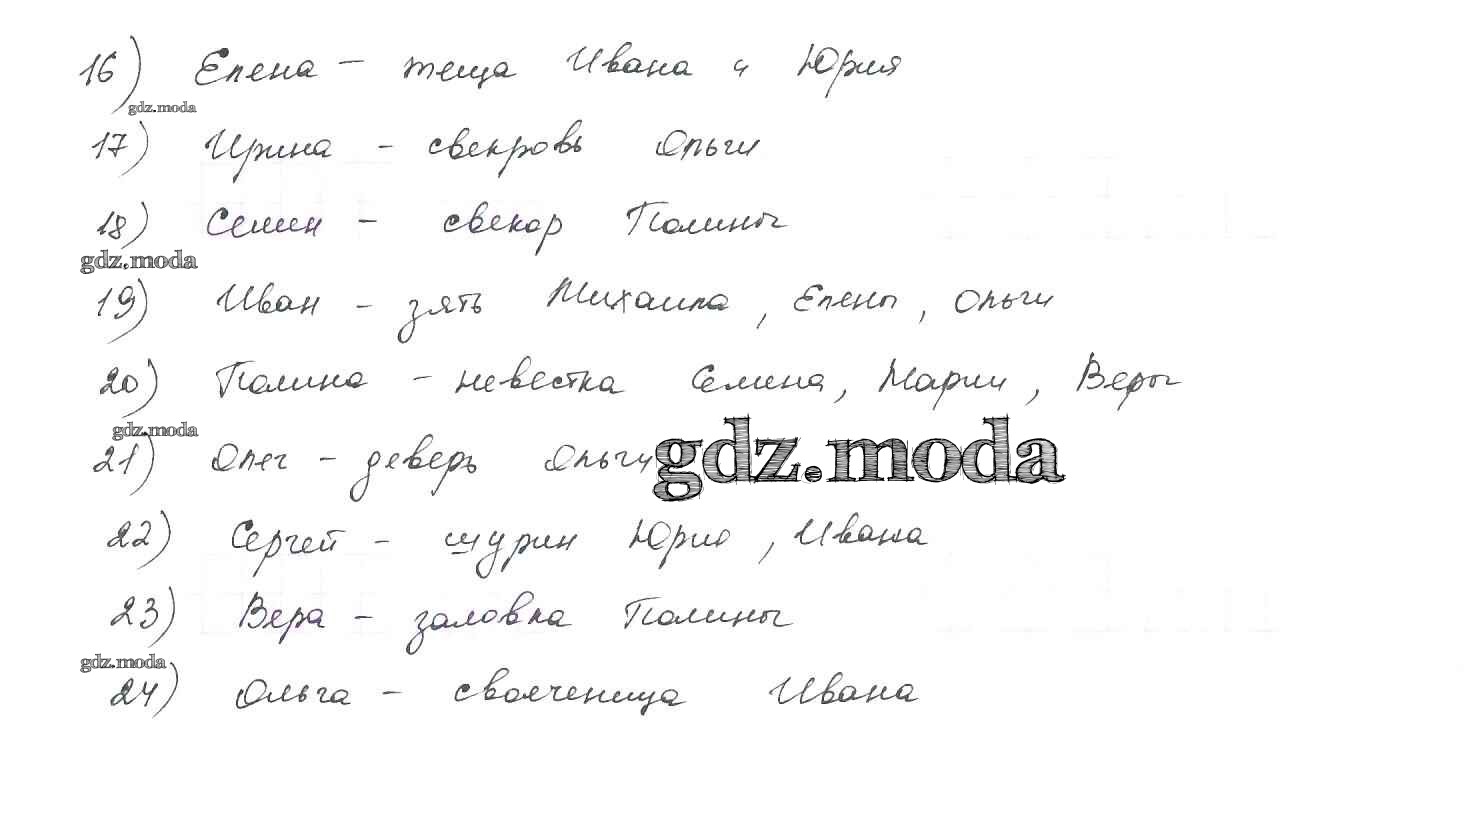 16) Елена – теща Ивана и Юрия
gdz.moda
17) Ирина - свекровь Ольги
18) Семен - свекор Полины
gdz.moda
19) Иван - зять Михаила, Елены, Ольги
20) Полина - невестка Семена, Марии, Веры
gdz.moda
21) Олег - деверь Ольги
gdz.moda
22) Сергей - шурин Юрия, Ивана
23) Вера - золовка Полины
gdz.moda
24) Ольга - свояченица Ивана